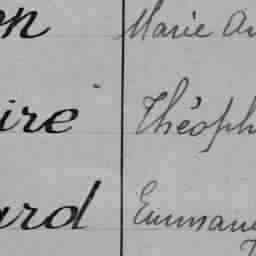 on Marie An
ire Théoph
ard Emmanu